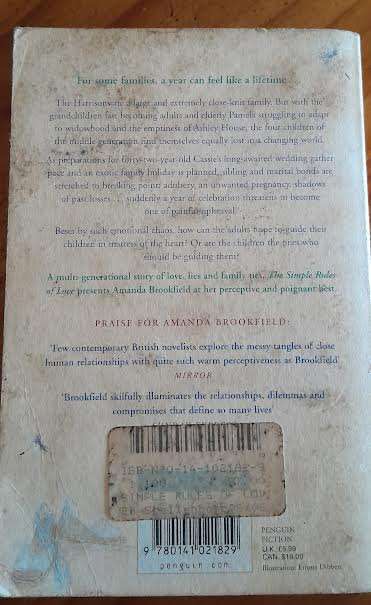 For some families, a year can feel like a lifetime ...
The Harrisons are a large and extremely close-knit family. But with the
grandchildren fast becoming adults and elderly Pamela struggling to adapt
to widowhood and the emptiness of Ashley House, the four children of
the middle generation find themselves equally lost in a changing world.
As preparations for forty-two-year-old Cassie's long-awaited wedding gather
pace and an exotic family holiday is planned, sibling and marital bonds are
stretched to breaking point: adultery, an unwanted pregnancy, shadows
of past losses ... suddenly a year of celebration threatens to become
one of painful upheaval.
Beset by such emotional chaos, how can the adults hope to guide
their children in matters of the heart? Or are the children the ones who
should be guiding them?
A multi-generational story of love, lies and family ties, The Simple Rules
of Love presents Amanda Brookfield at her perceptive and poignant best.
PRAISE FOR AMANDA BROOKFIELD:
'Few contemporary British novelists explore the messy tangles of close
human relationships with quite such warm perceptiveness as Brookfield'
MIRROR
'Brookfield skilfully illuminates the relationships, dilemmas and
compromises that define so many lives'
SIMPLE RULES OF LOV
9 780141 021829
penguin.com
PENGUIN
FICTION
U.K. £6.99
CAN. $18.00
Illustration: Emma Dibben